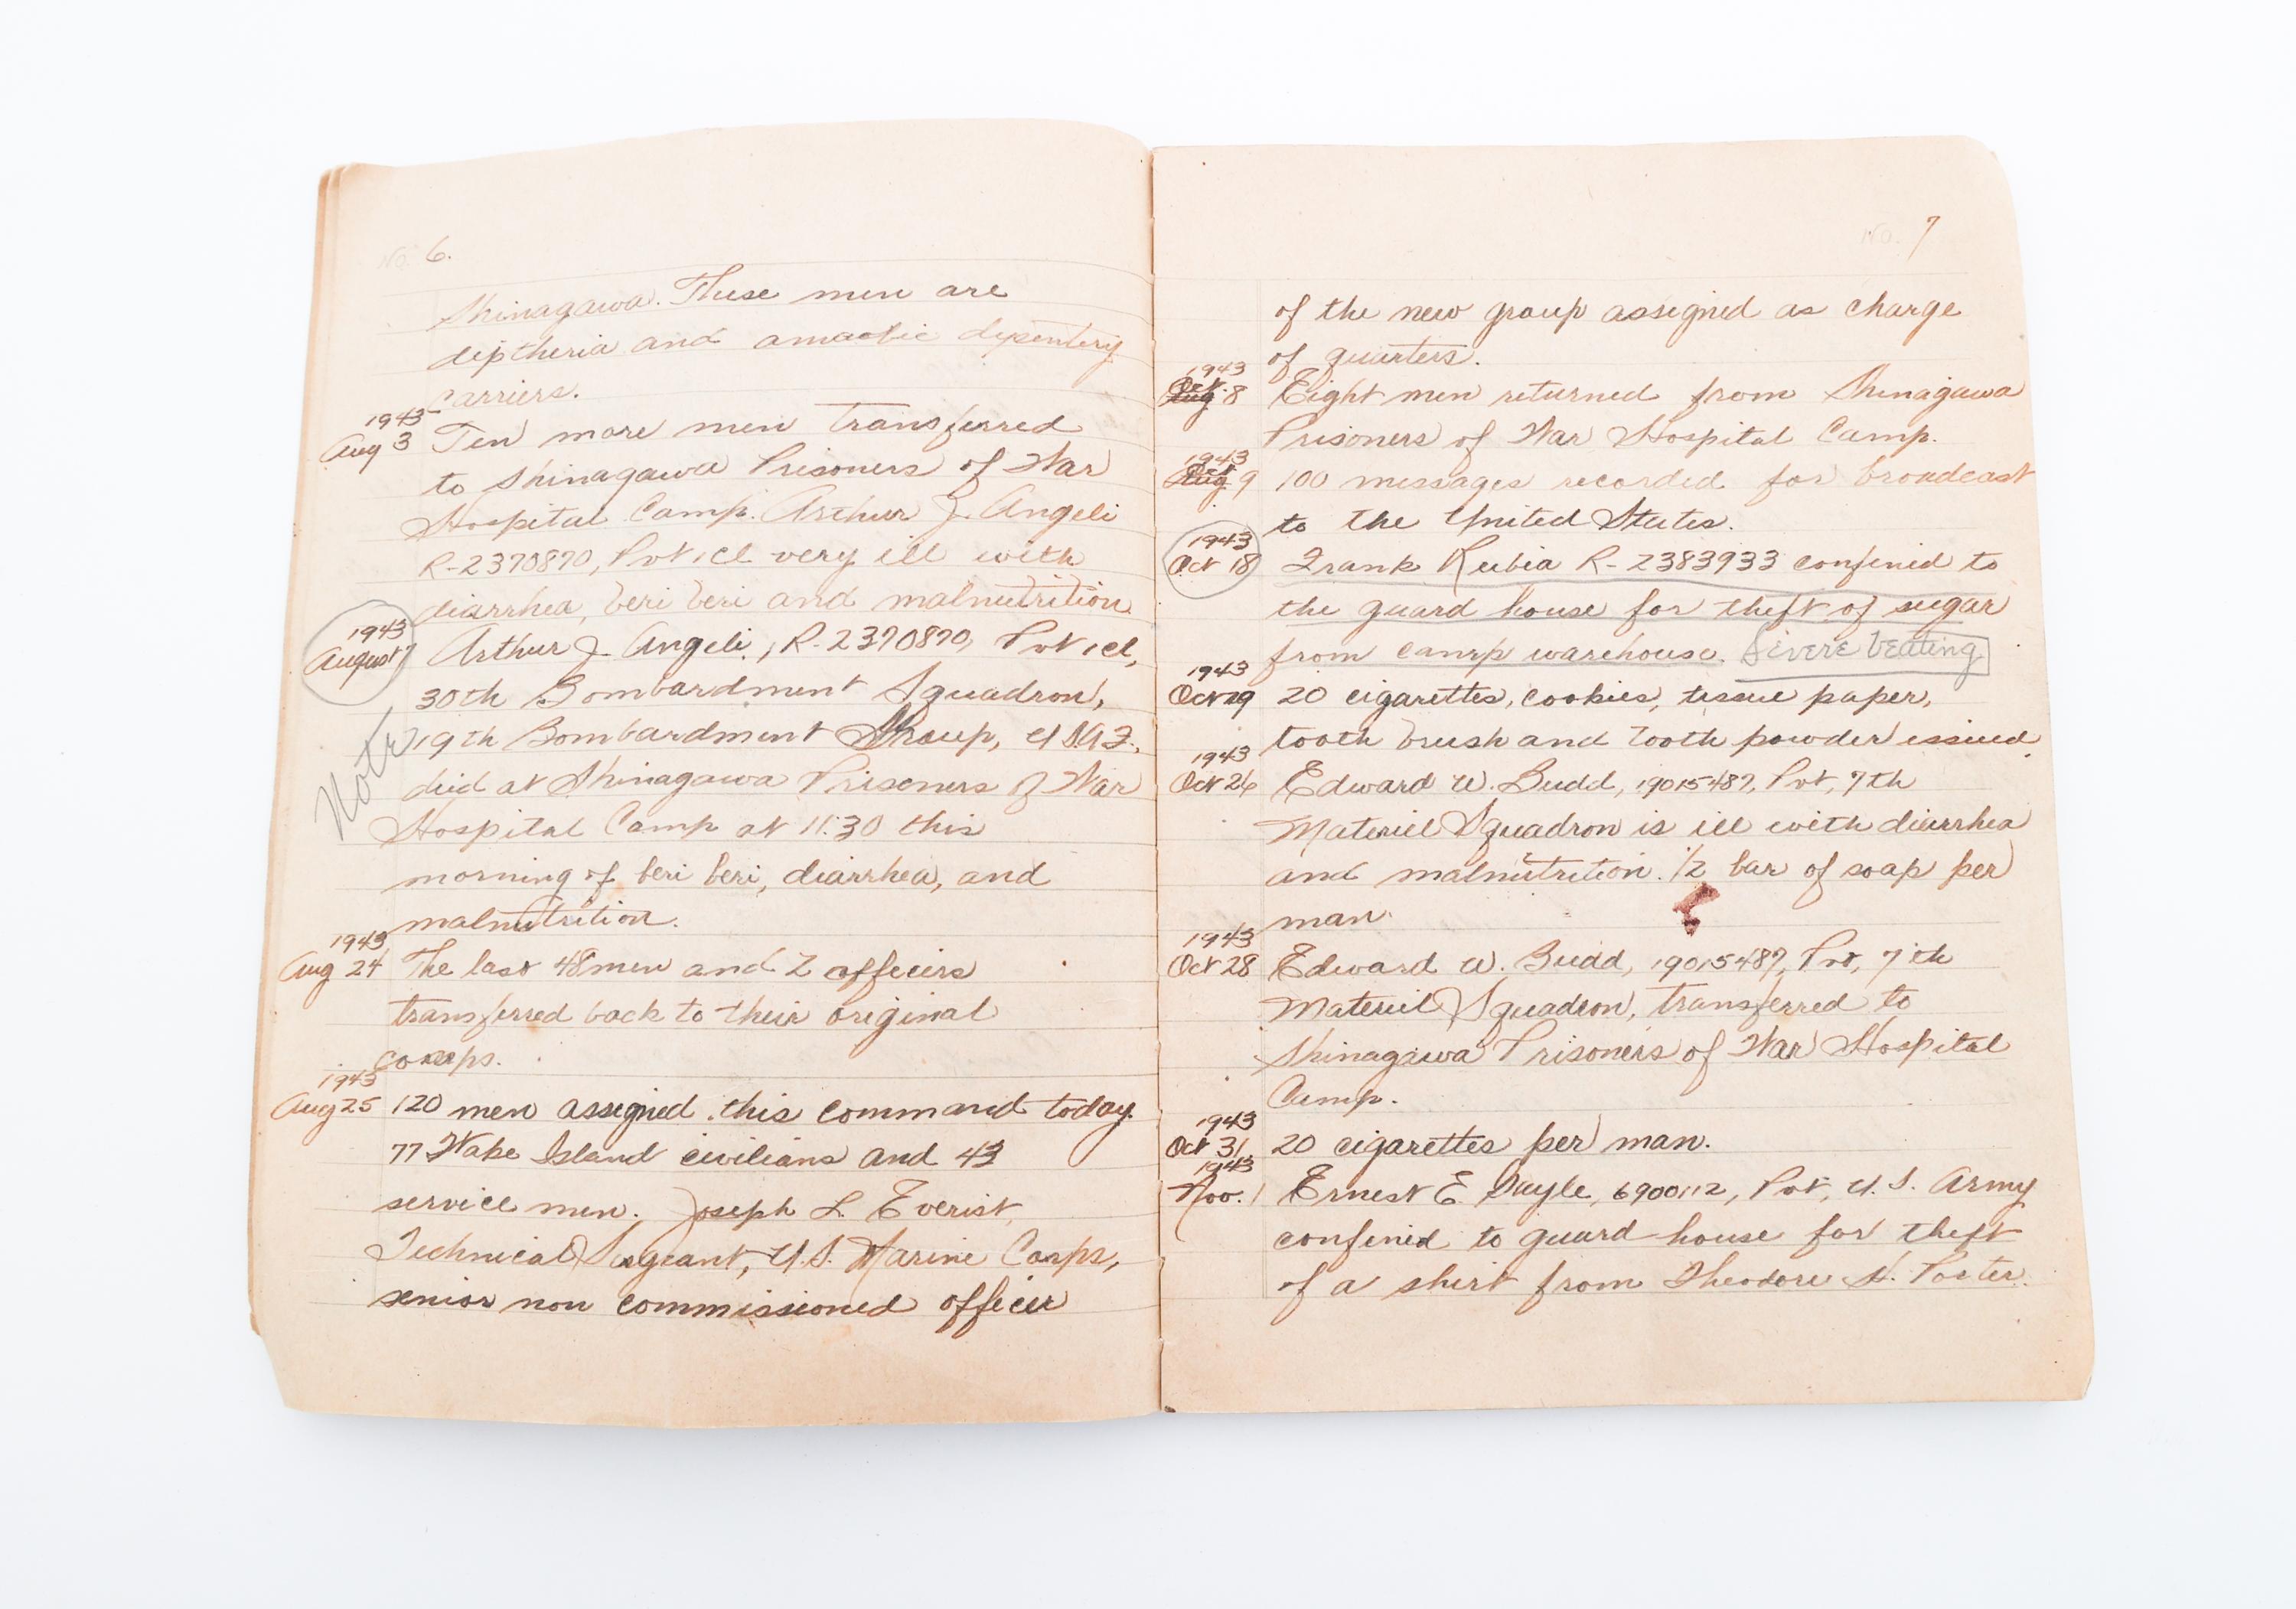 No. 6.
Shinagawa. These men are
diptheria and amaobic dysentery
carriers.
1943
Aug 3 Ten more men transferred
to Shinagawa Prisoners of War
Hospital Camp. Arthur J. Angeli
R-2370870, Pvt 1cl very ill with
diarrhea, beri beri and malnutrition
1943
August 7 Arthur J. Angeli, R-2370870, Pvt 1cl,
30th Bombardment Squadron,
Note
19th Bombardment Group, USAF.,
died at Shinagawa Prisoners of War
Hospital Camp at 11:30 this
morning of beri beri, diarrhea, and
malnutrition.
1943
Aug 24 The last 48 men and 2 officers
transferred back to their original
camps.
1943
Aug 25 120 men assigned this command today.
77 Wake Island civilians and 43
service men. Joseph L. Everist,
Technical Sergeant, U.S. Marine Corps,
senior non commissioned officer
No. 7
of the new group assigned as charge
of quarters.
1943
Oct. 8 Eight men returned from Shinagawa
Prisoners of War Hospital Camp.
1943
Oct. 9 100 messages recorded for broadcast
to the United States.
1943
Oct 18 Frank Rubia R-2383933 confined to
the guard house for theft of sugar
from camp warehouse. Severe beating
1943
Oct 19 20 cigarettes, cookies, tissue paper,
tooth brush and tooth powder issued.
1943
Oct 26 Edward W. Budd, 19015487, Pvt, 7th
Materiel Squadron is ill with diarrhea
and malnutrition. 1/2 bar of soap per
man.
1943
Oct 28 Edward W. Budd, 19015487, Pvt, 7th
Materiel Squadron, transferred to
Shinagawa Prisoners of War Hospital
Camp.
1943
Oct 31 20 cigarettes per man.
1943
Nov. 1 Ernest E. Gayle, 6900112, Pvt, U.S. Army
confined to guard house for theft
of a shirt from Theodore H. Foster.